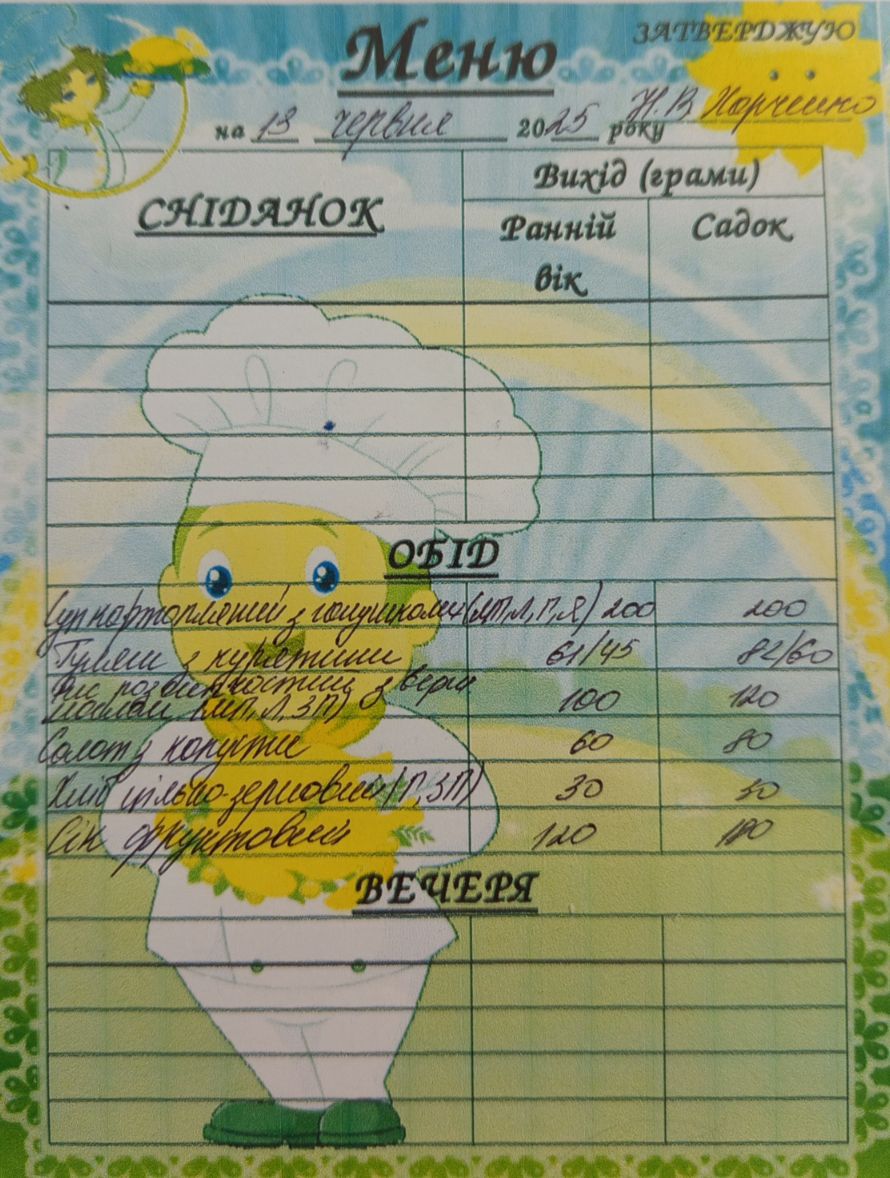 ЗАТВЕРДЖУЮ
Меню
на 13 червня 2025 року Н.В. Харченко
СНІДАНОК
Вихід (грами)
Ранній вік
Садок
ОБІД
Суп картопляний з галушками (МП, Л, Г, Я) 200 200
Гуляш з курятини 61/45 82/60
Рис розсипчастий з верш
маслом (МП, Л, ЗП) 100 120
Салат з капусти 60 80
Хліб цільно-зерновий (Г, ЗП) 30
Сік фруктовий 120
ВЕЧЕРЯ